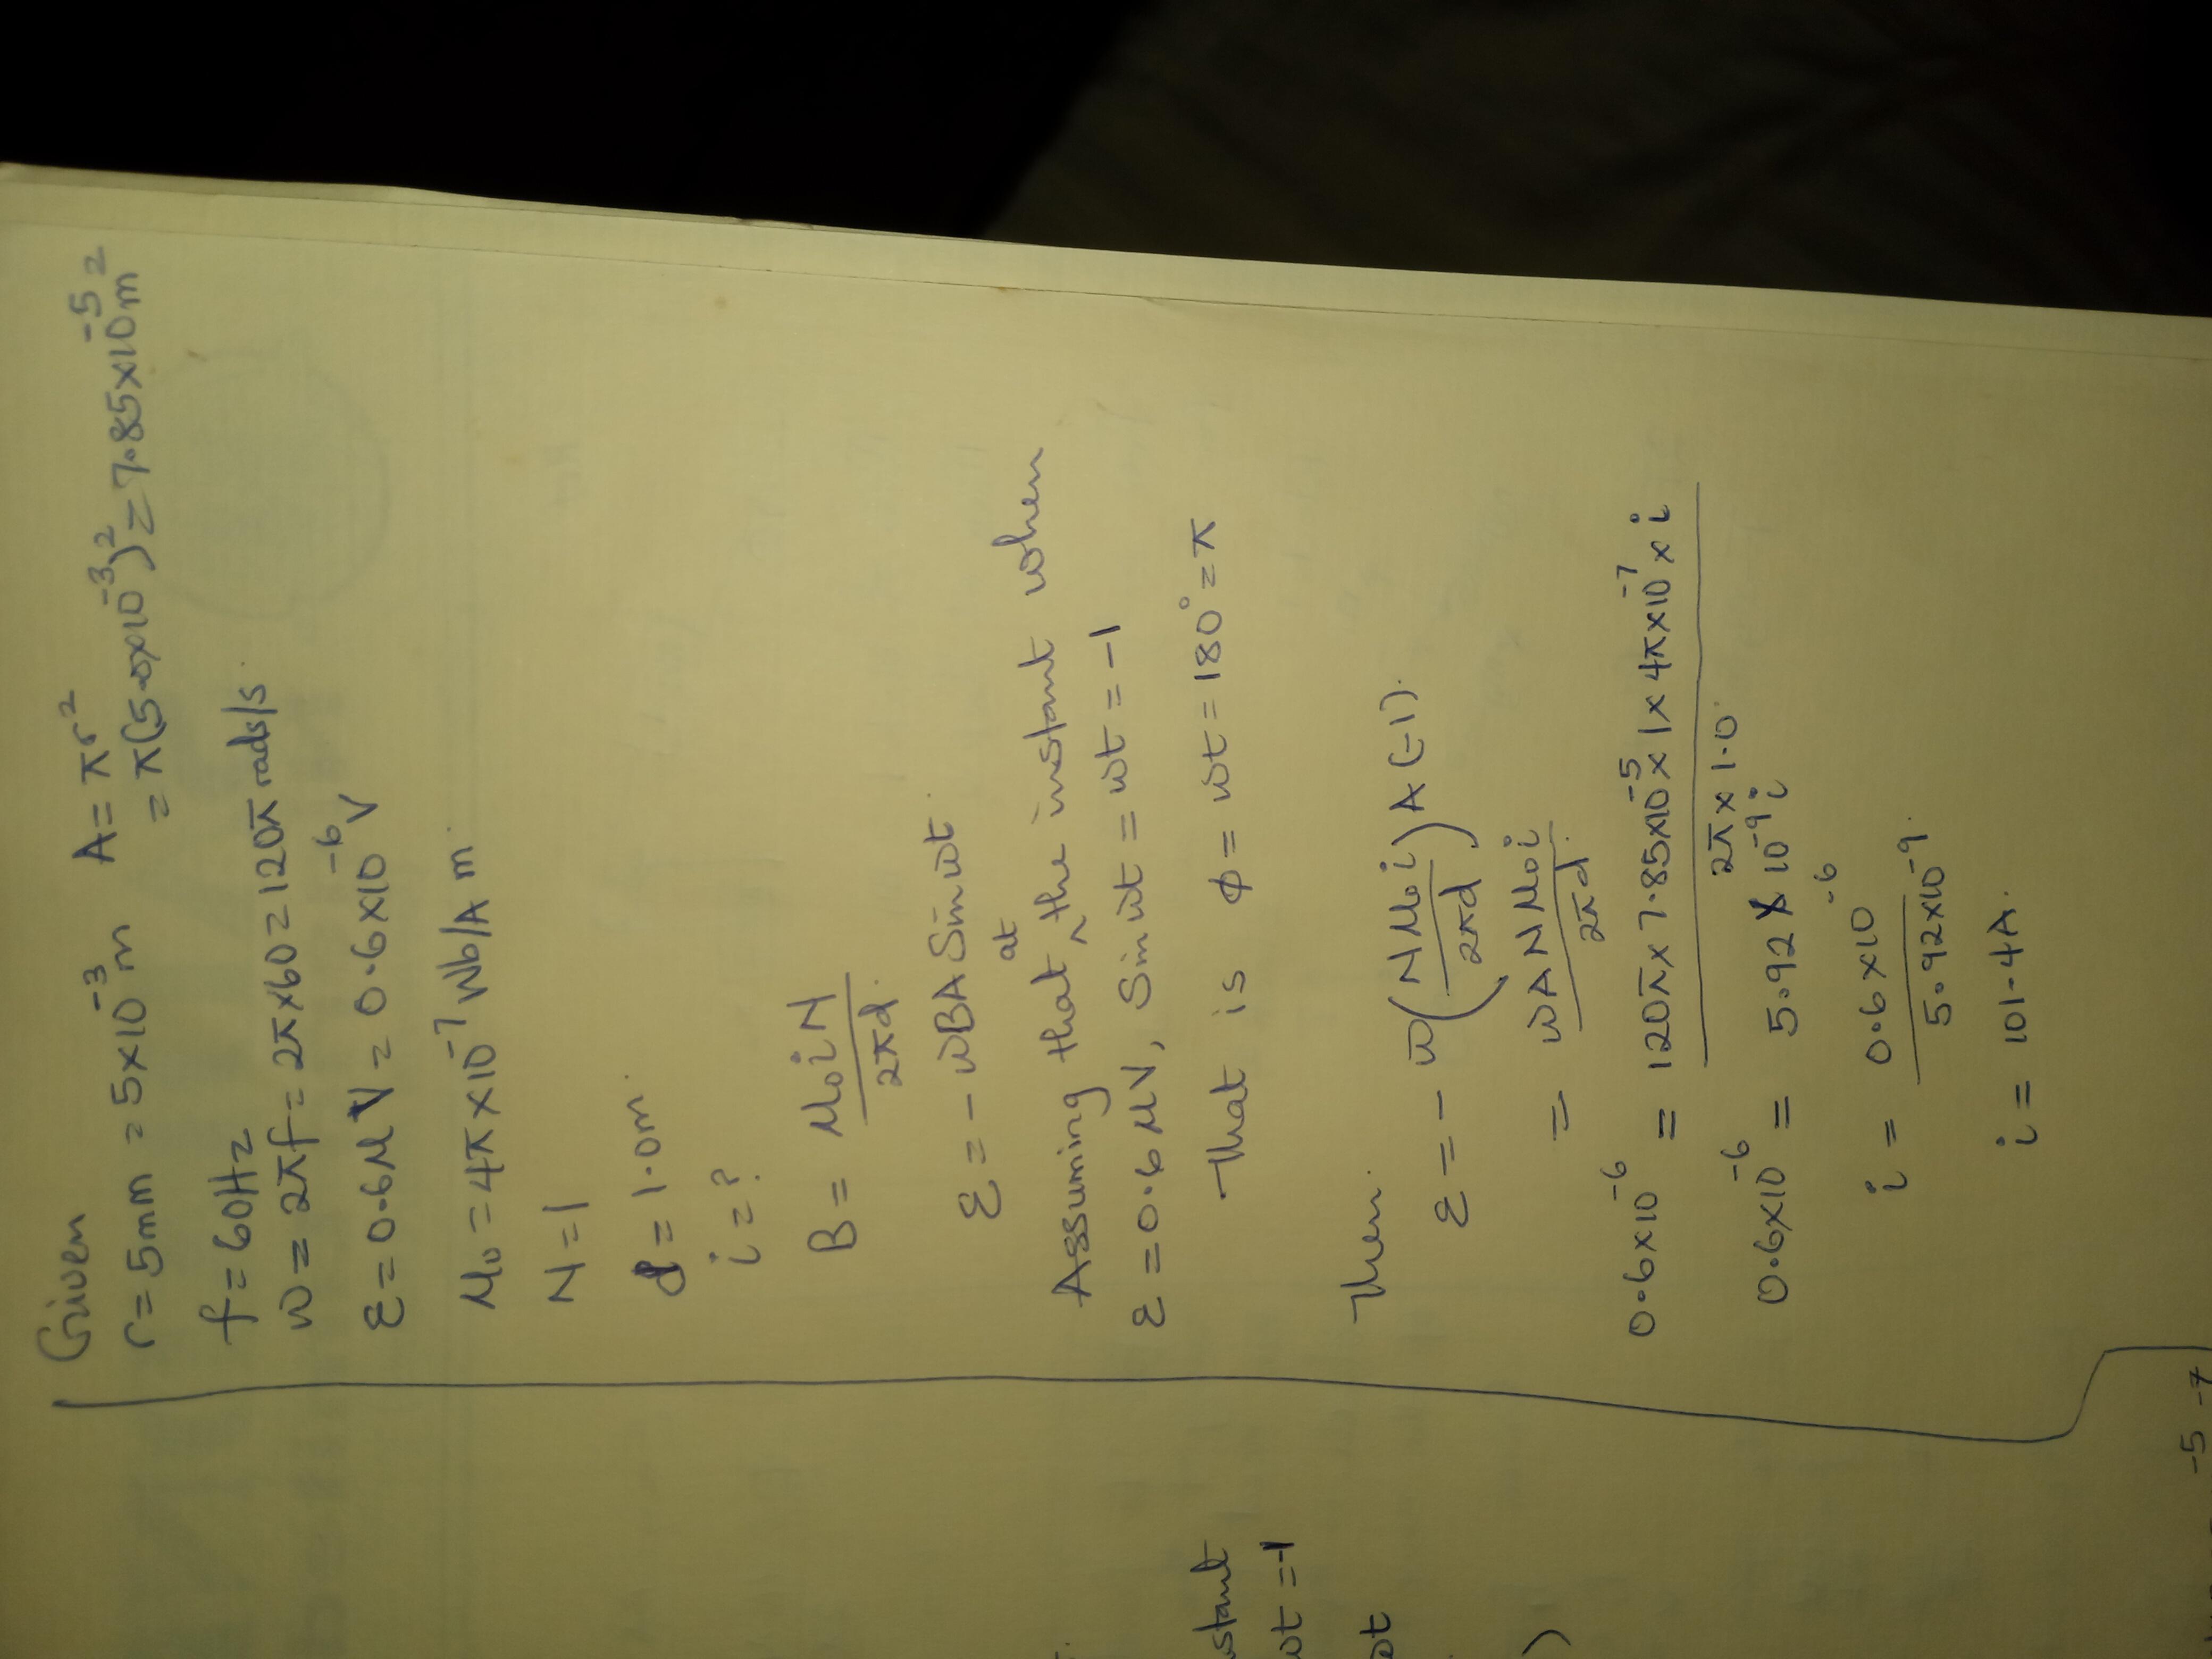 Given
r = 5mm = 5×10⁻³m A = πr²
= π(5.0×10⁻³)² = 7.85×10⁻⁵m²
f = 60Hz
ω = 2πf = 2π×60 = 120π rads/s
ε = 0.6μV = 0.6×10⁻⁶V
μ₀ = 4π×10⁻⁷Wb/A m.
N = 1
d = 1.0m.
i = ?
B = μ₀iN / 2πd.
ε = -ωBA Sin ωt.
Assuming that at the instant when
ε = 0.6μV, Sin ωt = ωt = -1
That is φ = ωt = 180° = π
Then.
ε = -ω(Nμ₀i / 2πd) A (-1).
= ωANμ₀i / 2πd.
0.6×10⁻⁶ = 120π×7.85×10⁻⁵×1×4π×10⁻⁷×i / 2π×1.0.
0.6×10⁻⁶ = 5.92×10⁻⁹i
i = 0.6×10⁻⁶ / 5.92×10⁻⁹.
i = 101.4A.
stant
ωt = -1
ωt
)
-5 -7